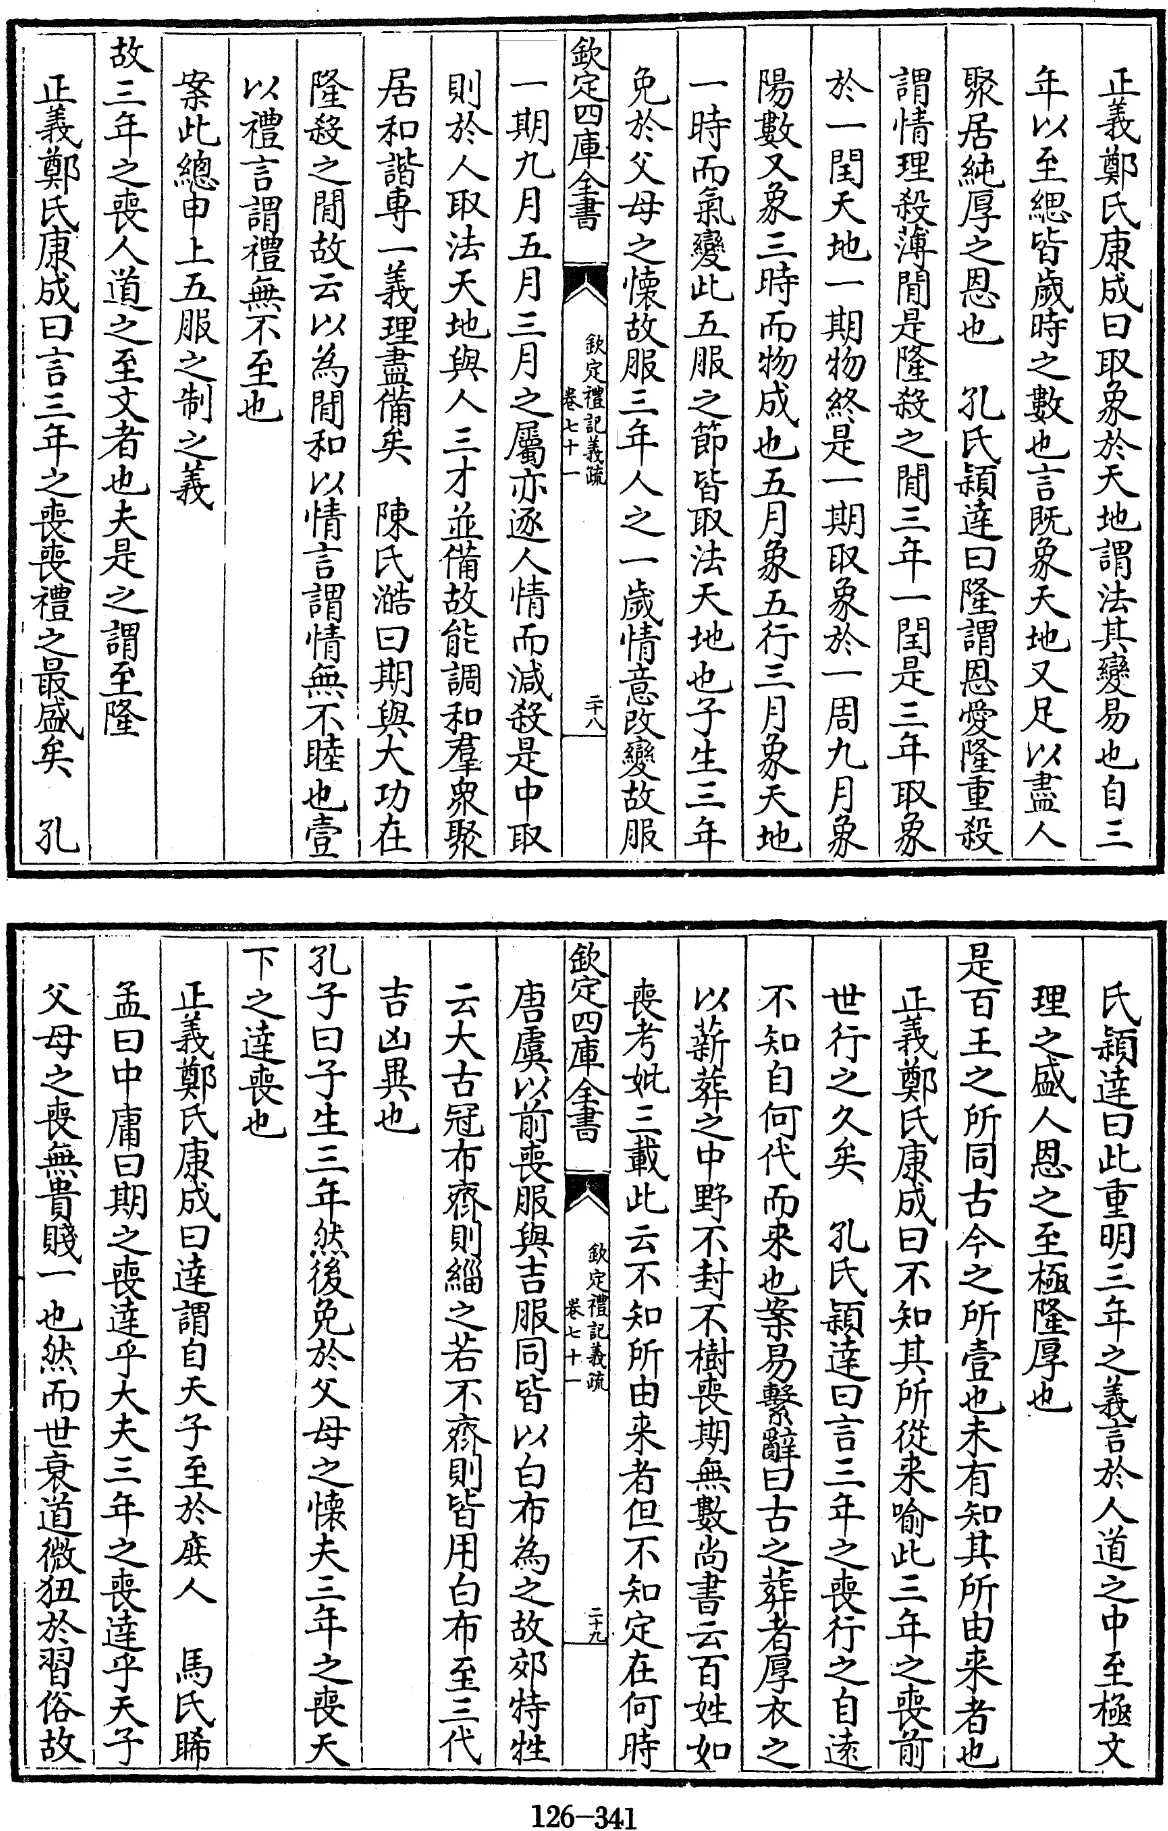 正義鄭氏康成曰取象於天地謂法其變易也自三
年以至緦皆歲時之數也言既象天地又足以盡人
聚居純厚之恩也　孔氏穎達曰隆謂恩愛隆重殺
謂情理殺薄間是隆殺之間三年一閏是三年取象
於一閏天地一期物終是一期取象於一周九月象
陽數又象三時而物成也五月象五行三月象天地
一時而氣變此五服之節皆取法天地也子生三年
免於父母之懷故服三年人之一歲情意改變故服
欽定四庫全書
欽定禮記義疏
卷七十一
二十八
一期九月五月三月之屬亦逐人情而減殺是中取
則於人取法天地與人三才並備故能調和羣衆聚
居和諧專一義理盡備矣　陳氏澔曰期與大功在
隆殺之間故云以為間和以情言謂情無不睦也壹
以禮言謂禮無不至也
案此總申上五服之制之義
故三年之喪人道之至文者也夫是之謂至隆
正義鄭氏康成曰言三年之喪喪禮之最盛矣　孔
氏穎達曰此重明三年之義言於人道之中至極文
理之盛人恩之至極隆厚也
是百王之所同古今之所壹也未有知其所由来者也
正義鄭氏康成曰不知其所從来喻此三年之喪前
世行之久矣　孔氏穎達曰言三年之喪行之自遠
不知自何代而来也案易繫辭曰古之葬者厚衣之
以薪葬之中野不封不樹喪期無數尚書云百姓如
喪考妣三載此云不知所由来者但不知定在何時
欽定四庫全書
欽定禮記義疏
卷七十一
二十九
唐虞以前喪服與吉服同皆以白布為之故郊特牲
云大古冠布齊則緇之若不齊則皆用白布至三代
吉凶異也
孔子曰子生三年然後免於父母之懷夫三年之喪天
下之達喪也
正義鄭氏康成曰達謂自天子至於庶人　馬氏睎
孟曰中庸曰期之喪達乎大夫三年之喪達乎天子
父母之喪無貴賤一也然而世衰道微狃於習俗故
126-341